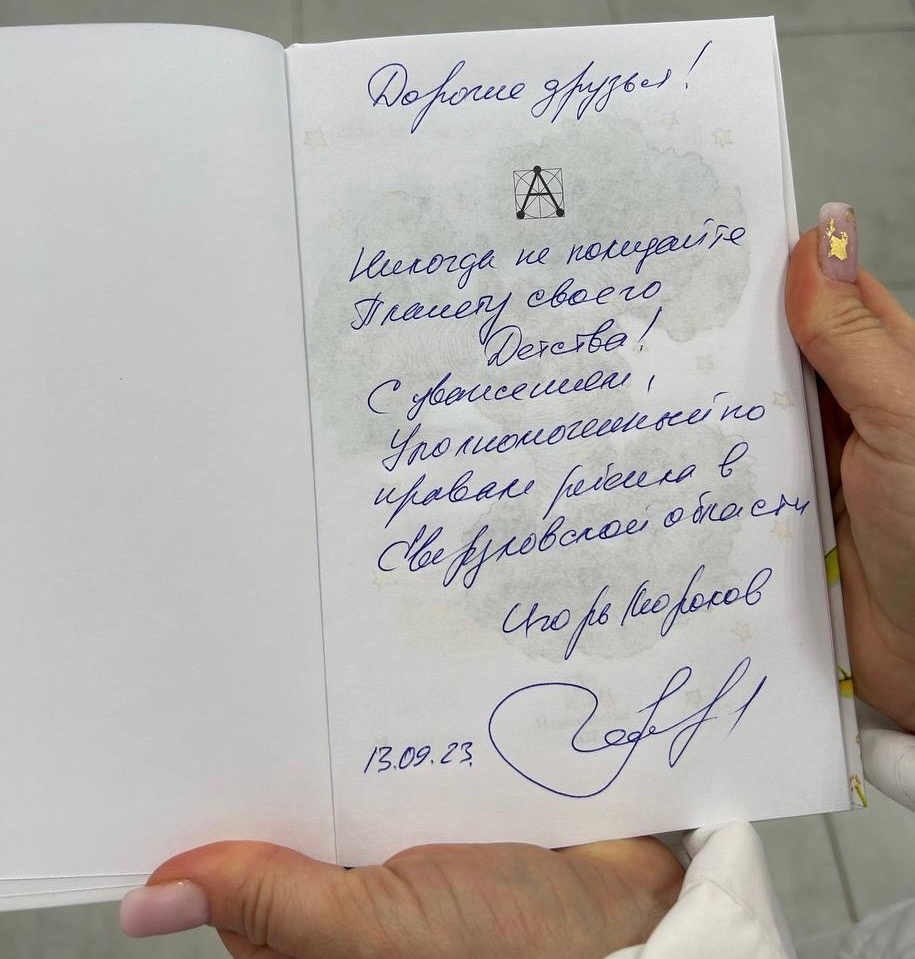 Дорогие друзья!
А
Никогда не покидайте
Планету своего
Детства!
С уважением,
Уполномоченный по
правам ребенка в
Свердловской области
Игорь Мороков
13.09.23.